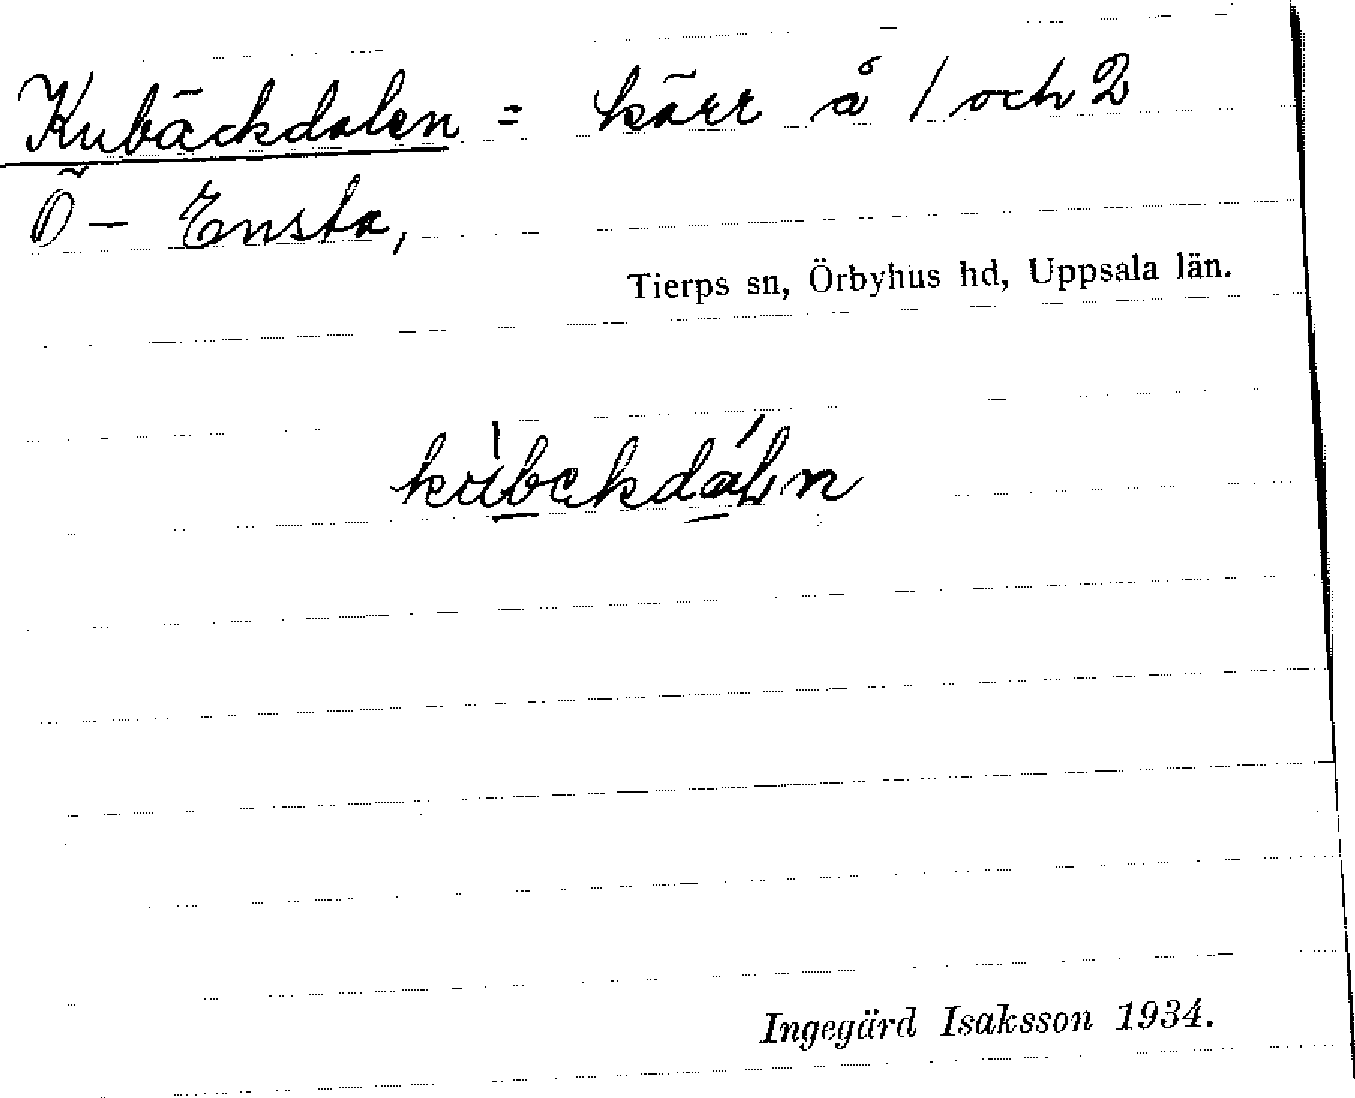 Kubäckdalen = kärr å 1 och 2
Ö - Ensta,
Tierps sn, Örbyhus hd, Uppsala län.
kùbekdáln
Ingegärd Isaksson 1934.